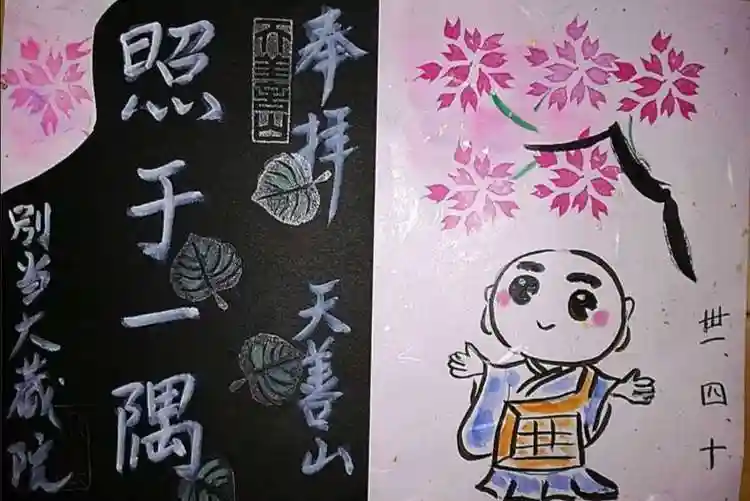 奉拝 天善山
照于一隅
別当大蔵院
卅一.四.十